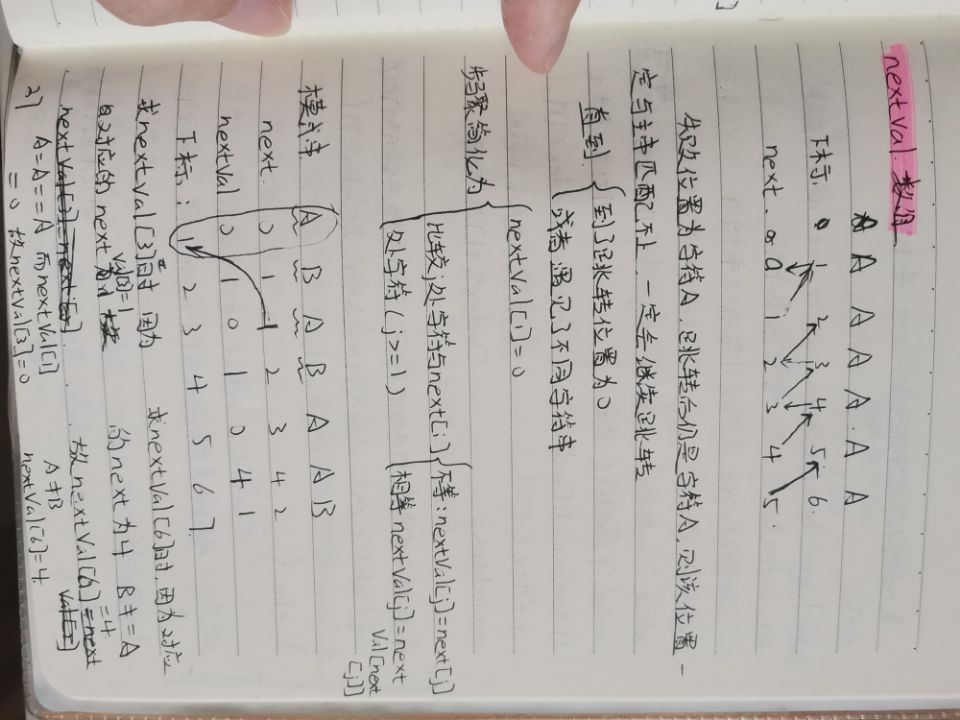 nextval 数组
A A A A A A
下标: 0 1 2 3 4 5 6.
next. 0 1 2 3 4 5.
失败位置为字符A, 跳转后仍是字符A, 则该位置一
定与主串匹配不上, 一定会继续跳转
直到 到了跳转位置为0
或者遇见了不同字符串
步骤简化为
nextval[i]=0
比较j处字符与next[j]
处字符 (j>=1)
不等: nextval[j]=next[j]
相等 nextval[j]=next
val[next
[j]]
模式串 A B A B A A B
next. 0 1 1 2 3 4 2
nextval 0 1 0 1 0 4 1
下标: 1 2 3 4 5 6 7
求nextval[3]时 因为
对应的next val[3]=1
nextval[3]=next[3].
37 A=A=A 而nextval[1]
=0 故nextval[3]=0
求nextval[6]时, 因为对应
的next为4 B≠A
故nextval[6]=next
=4
A≠B
nextval[6]=4